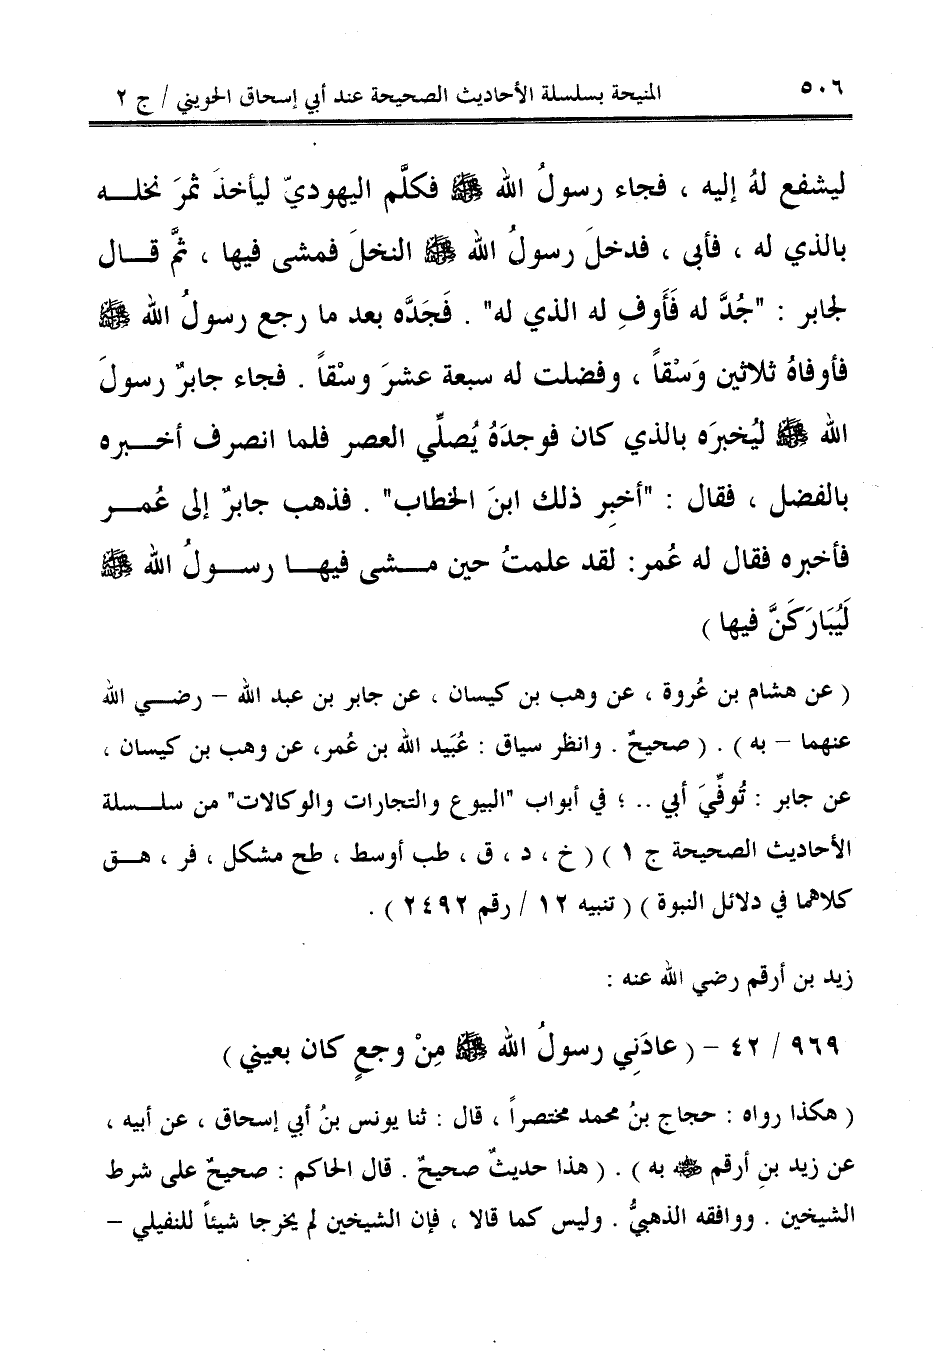 ٥٠٦ المنيحة بسلسلة الأحاديث الصحيحة عند أبي إسحاق الحويني / ج ٢
ليشفع لهُ إليه ، فجاء رسولُ الله ﷺ فكلَّم اليهوديّ ليأخذَ ثمرَ نخلـــه
بالذي له ، فأبى ، فدخلَ رسولُ الله ﷺ النخلَ فمشى فيها ، ثمَّ قـــال
لجابر : "جُدَّ له فَأَوفِ له الذي له" . فَجَدَّه بعد ما رجع رسولُ الله ﷺ
فأوفاهُ ثلاثين وَسْقاً ، وفضلت له سبعة عشرَ وسْقاً . فجاء جابرٌ رسولَ
الله ﷺ ليُخبرَه بالذي كان فوجدَهُ يُصلِّي العصر فلما انصرف أخـــبره
بالفضل ، فقال : "أخبِر ذلك ابنَ الخطاب" . فذهب جابرٌ إلى عُمـــر
فأخبره فقال له عُمر: لقد علمتُ حين مـــشى فيهـــا رســـولُ الله ﷺ
لَيُبَارَكَنَّ فيها )
( عن هشام بن عُروة ، عن وهب بن كيسان ، عن جابر بن عبد الله – رضـــي الله
عنهما – به ) . ( صحيحٌ . وانظر سياق : عُبَيد الله بن عُمر، عن وهب بن كيسان ،
عن جابر : تُوفِّيَ أبي .. ؛ في أبواب "البيوع والتجارات والوكالات" من سلـــسلة
الأحاديث الصحيحة ج ١ ) ( خ ، د ، ق ، طب أوسط ، طح مشكل ، فر ، هـــق
كلاهما في دلائل النبوة ) ( تنبيه ١٢ / رقم ٢٤٩٢ ) .
زيد بن أرقم رضي الله عنه :
٩٦٩ / ٤٢ – ( عادَنِي رسولُ الله ﷺ مِنْ وجعٍ كان بعيني )
( هكذا رواه : حجاج بنُ محمد مختصراً ، قال : ثنا يونس بنُ أبي إسحاق ، عن أبيه ،
عن زيد بنِ أرقم ﷺ به ) . ( هذا حديثٌ صحيحٌ . قال الحاكم : صحيحٌ على شرط
الشيخين . ووافقه الذهبيُّ . وليس كما قالا ، فإن الشيخين لم يخرجا شيئاً للنفيلي –